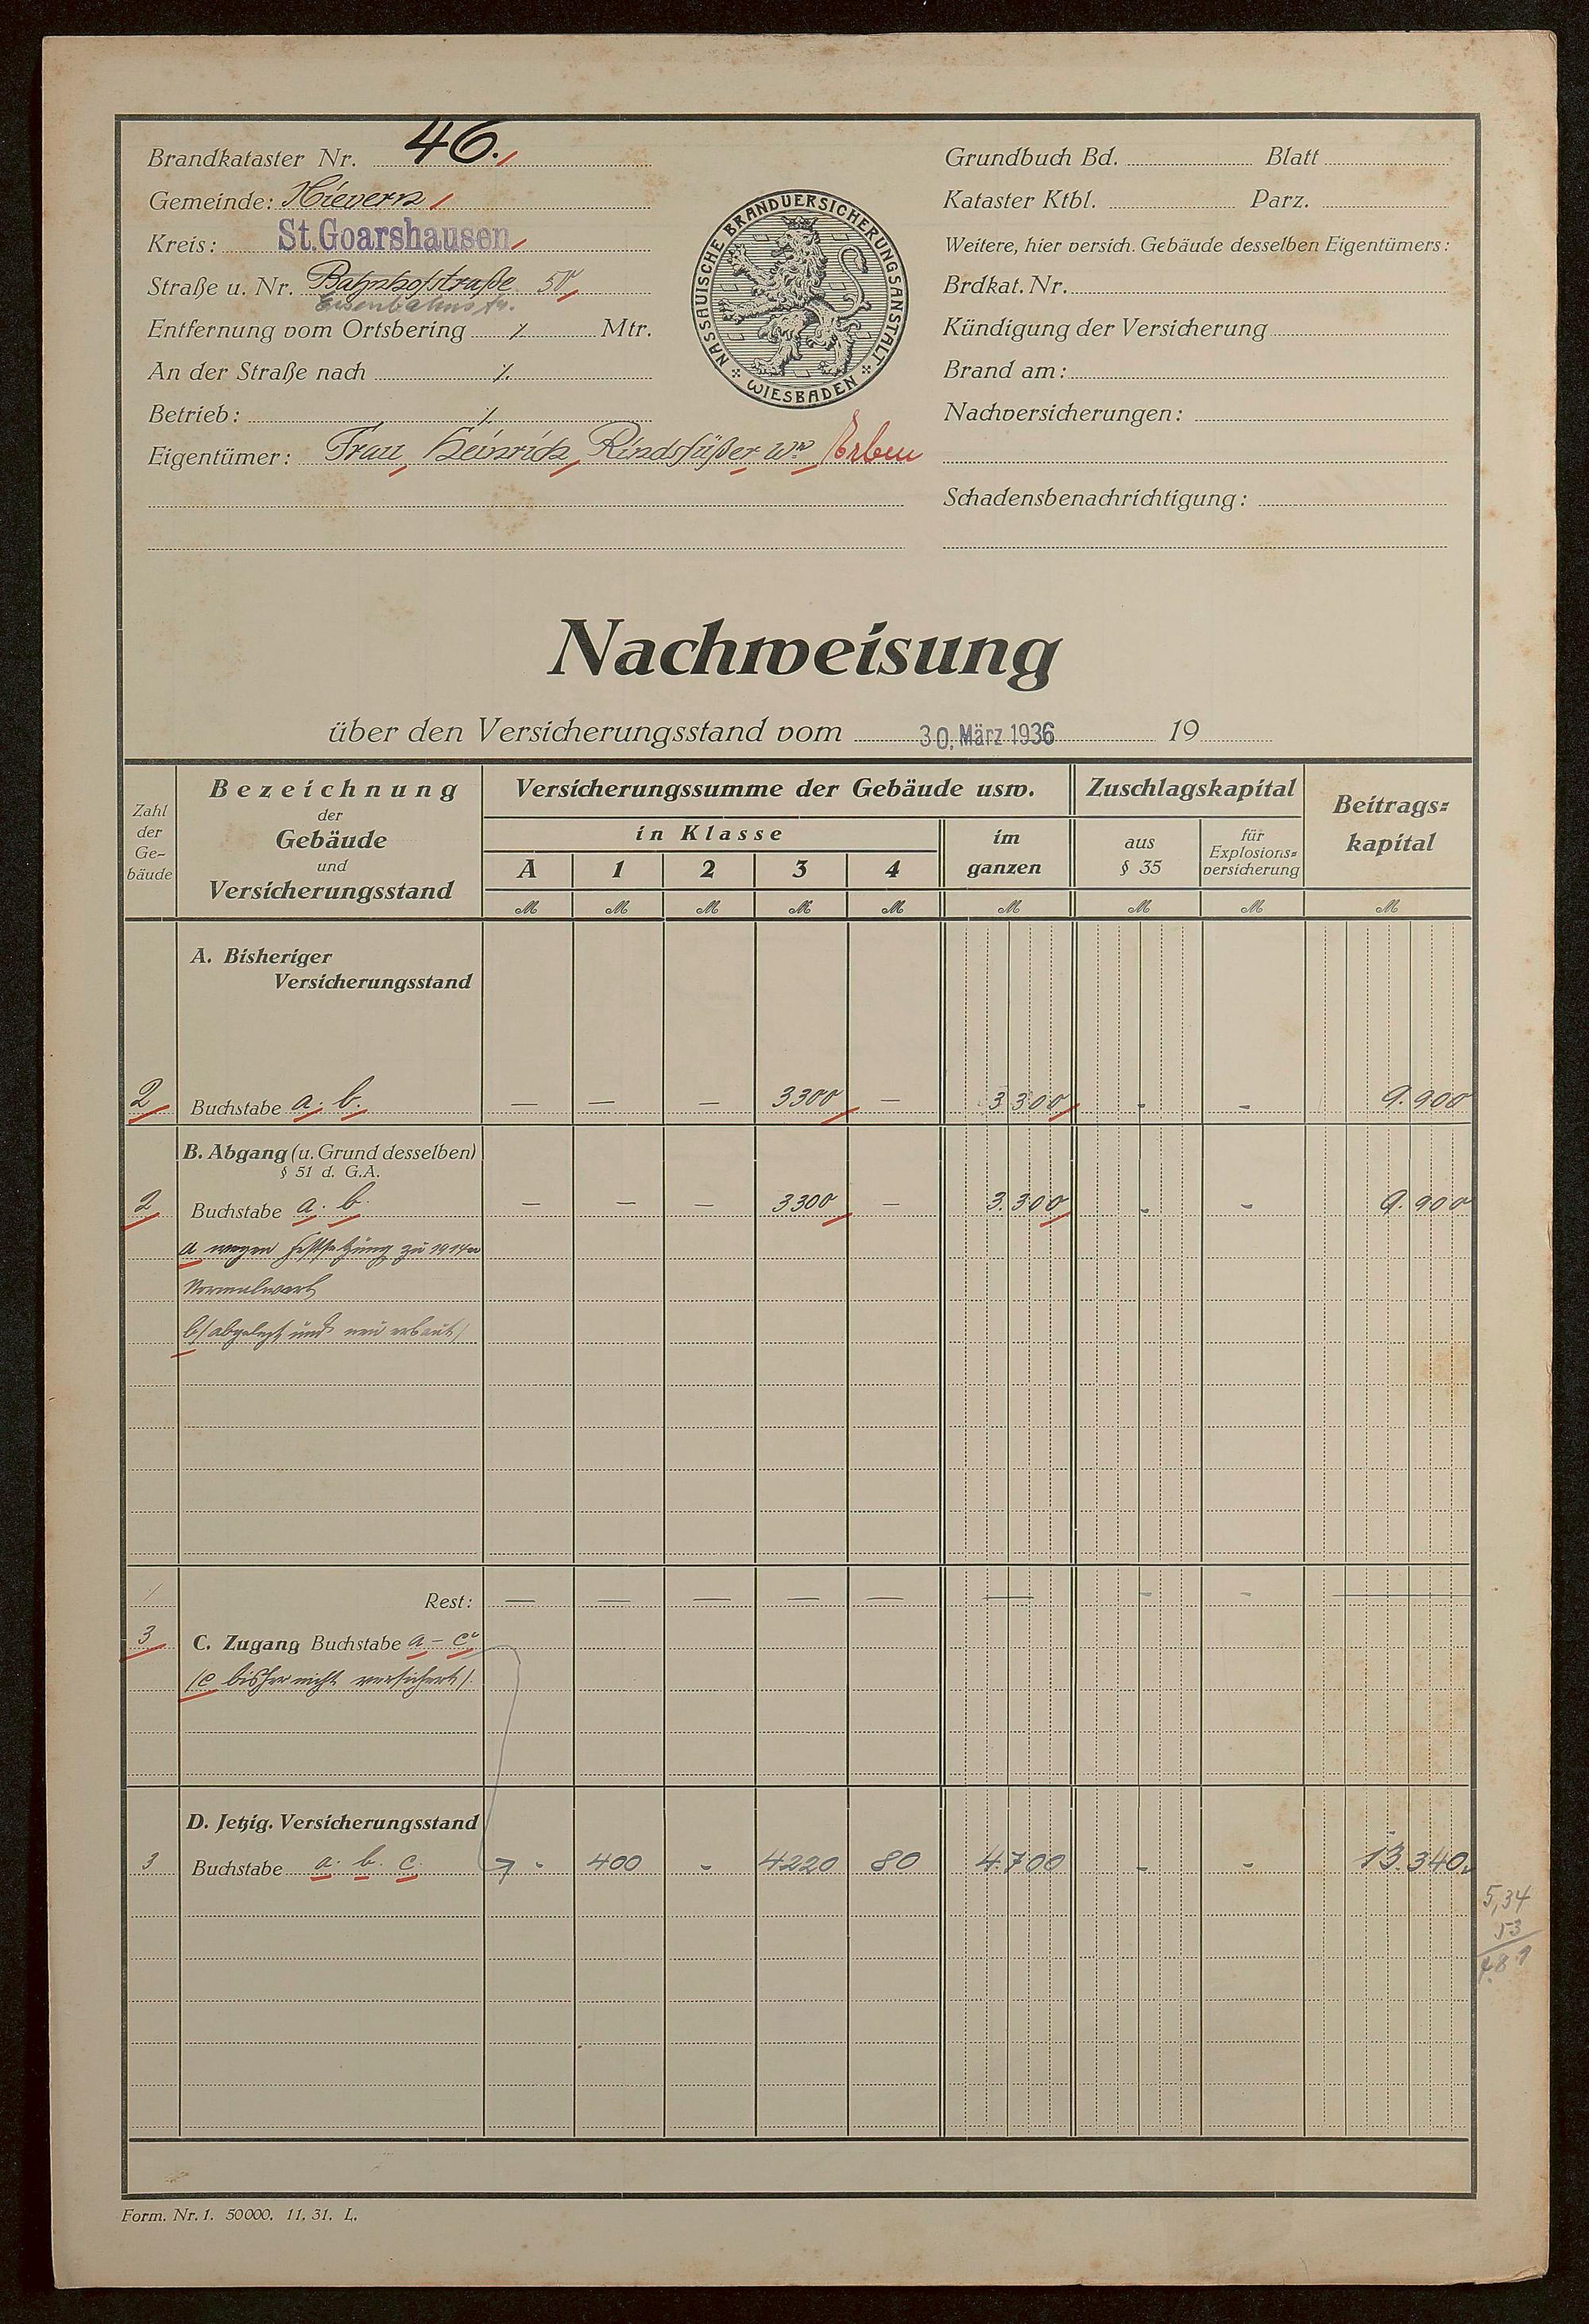 Brandkataster Nr. 46.
Gemeinde: Nievern
Kreis: St. Goarshausen
Straße u. Nr. Bahnhofstraße 50
Eisenbahnstr.
Entfernung vom Ortsbering ⁒ Mtr.
An der Straße nach ⁒
Betrieb: ⁒
Eigentümer: Frau Heinrich Rindsfüßer Ww Erben
NASSAUISCHE BRANDVERSICHERUNGSANSTALT
WIESBADEN
Grundbuch Bd. Blatt
Kataster Ktbl. Parz.
Weitere, hier versich. Gebäude desselben Eigentümers:
Brdkat. Nr.
Kündigung der Versicherung
Brand am:
Nachversicherungen:
Schadensbenachrichtigung:
Nachweisung
über den Versicherungsstand vom 30. März 1936 19
Zahl der Ge-bäude
Bezeichnung der Gebäude und Versicherungsstand
Versicherungssumme der Gebäude usw.
Zuschlagskapital
Beitrags=kapital
in Klasse
im ganzen
aus § 35
für Explosions=versicherung
A 1 2 3 4
M M M M M M M M M
A. Bisheriger
Versicherungsstand
2 Buchstabe a. b. — — — 3300 — 3.300 - - 9.900
B. Abgang (u. Grund desselben)
§ 51 d. G.A.
2 Buchstabe a. b. — — — 3300 — 3.300 - - 9.900
a wegen Festsetzung zu 1914er
Normalwert
b/ abgelegt und neu erbaut/
Rest: — — — — — — - - —
3 C. Zugang Buchstabe a – c
/c bisher nicht versichert/.
D. Jetzig. Versicherungsstand
3 Buchstabe a. b. c. - 400 - 4220 80 4.700 - - 13.340
5,34
53
4.81
Form. Nr. 1. 50000. 11. 31. L.